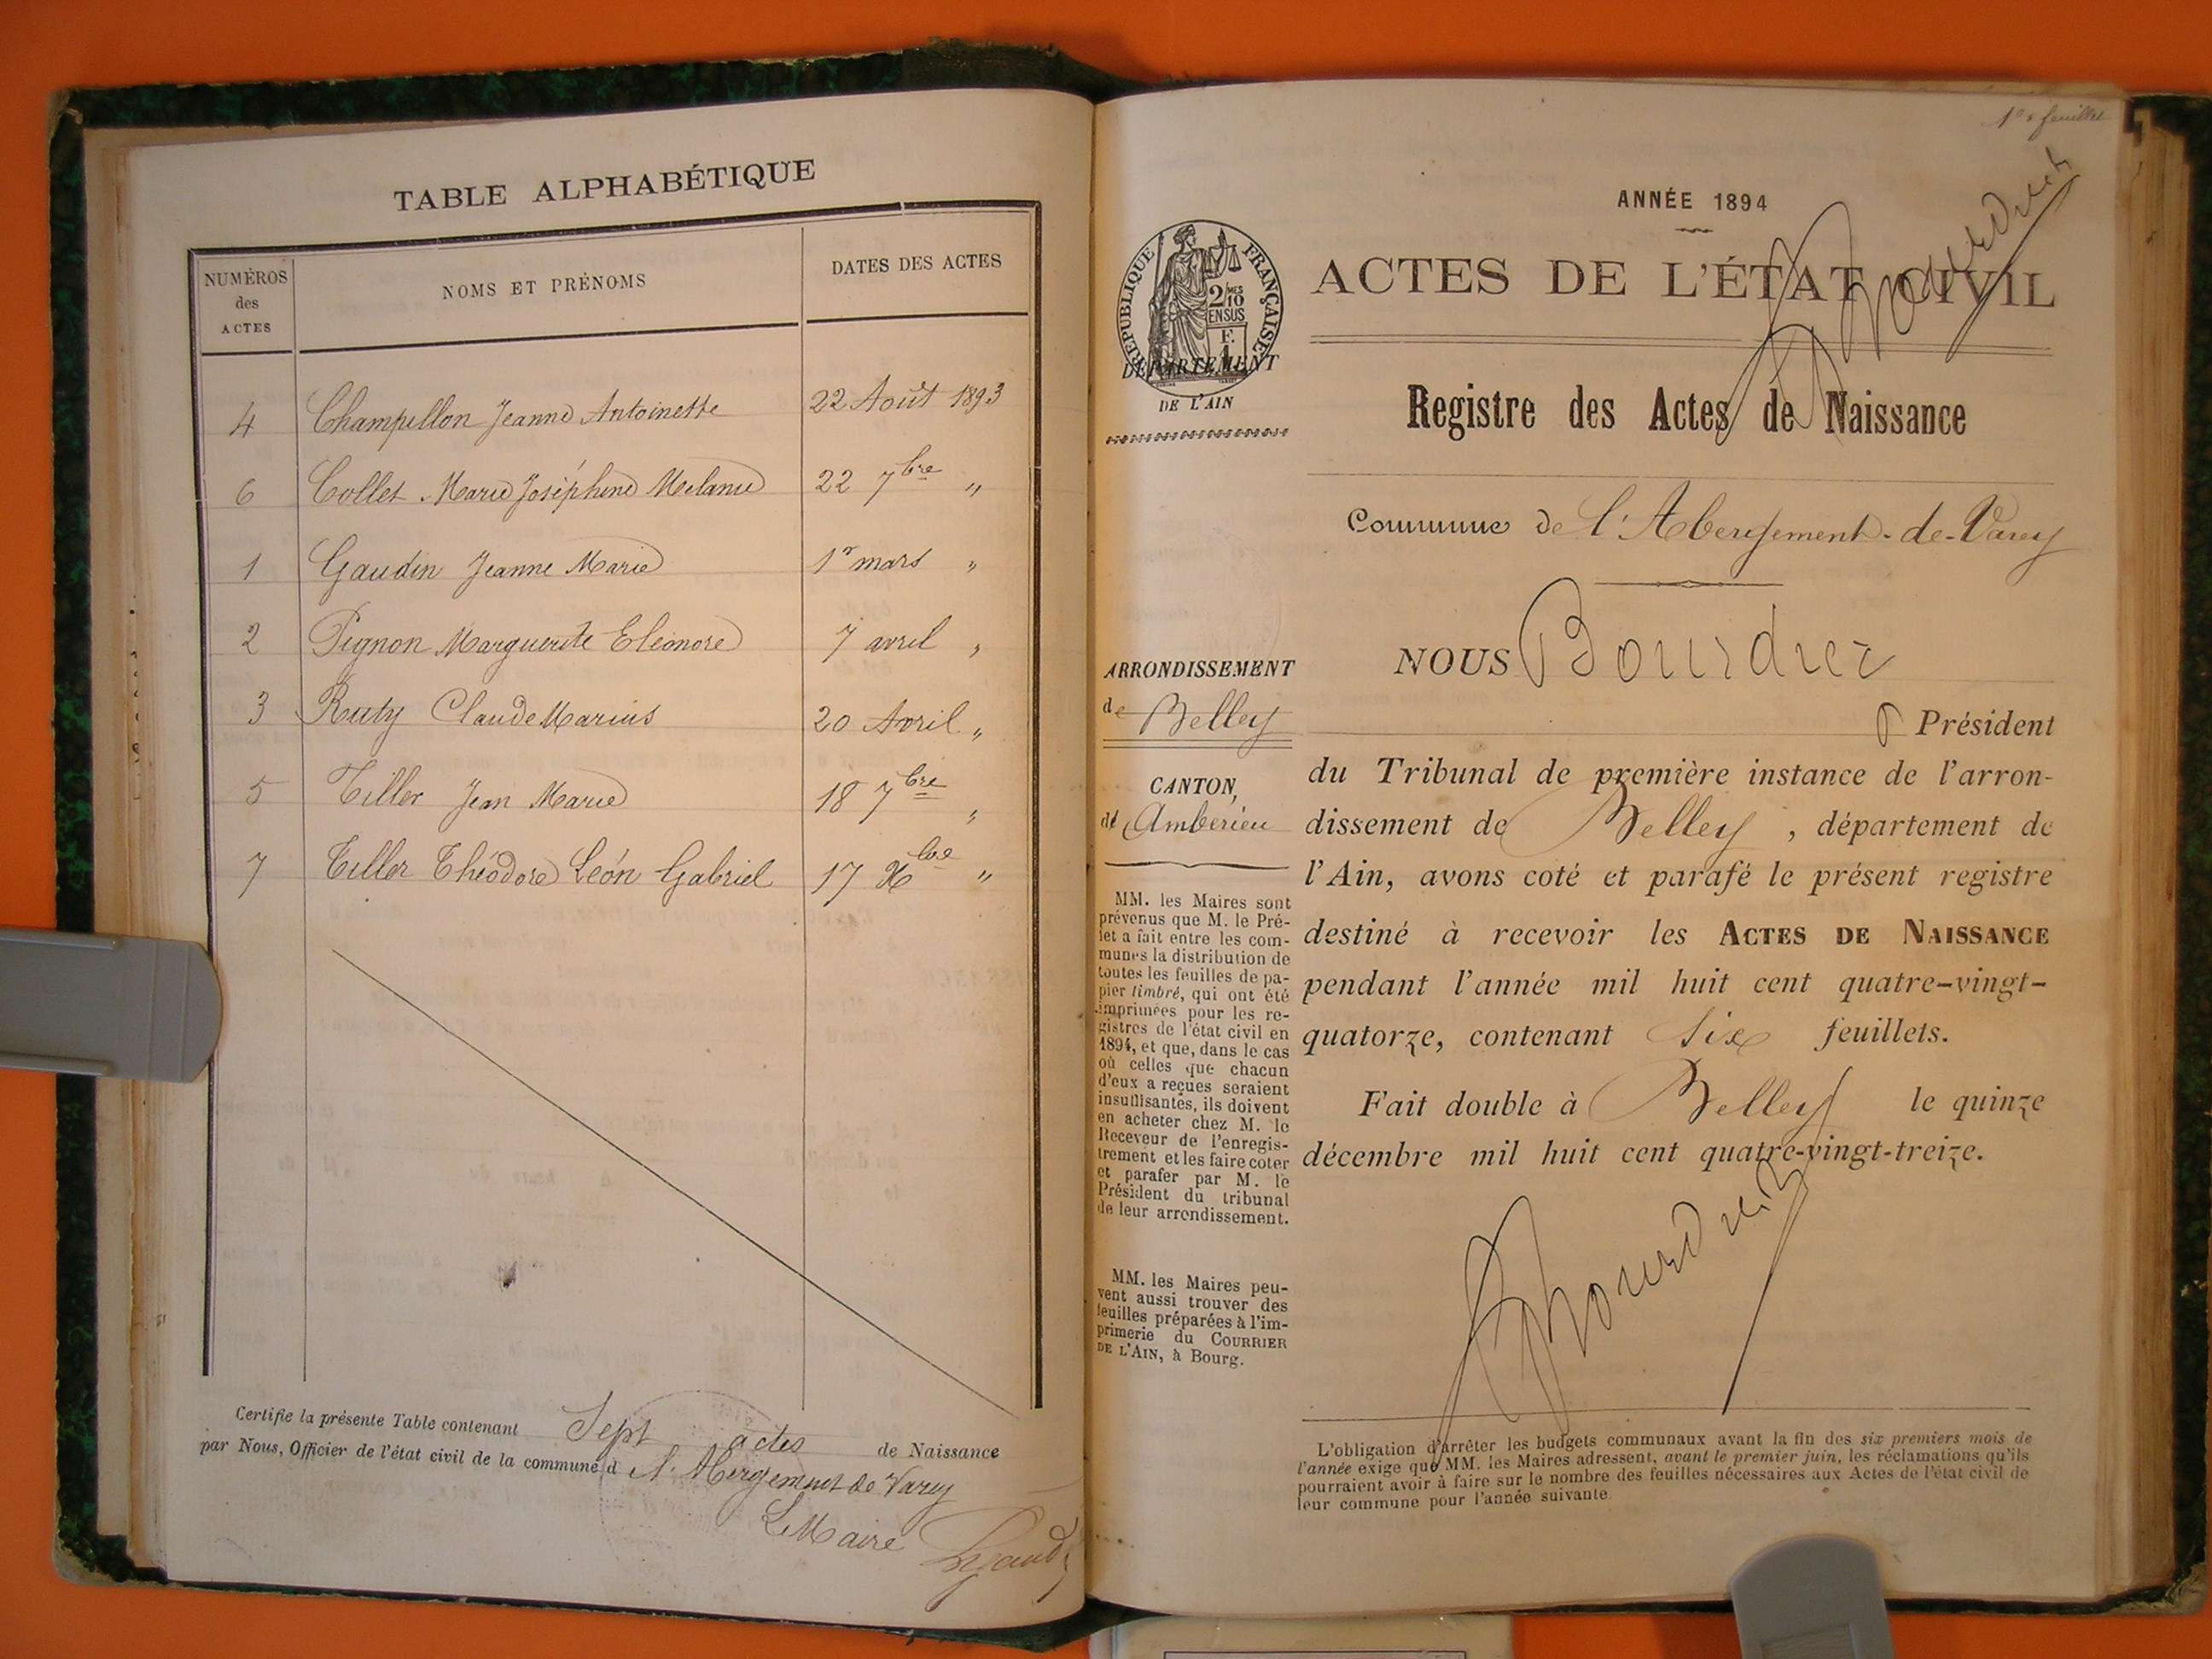 TABLE ALPHABÉTIQUE
NUMÉROS
des
ACTES
NOMS ET PRÉNOMS
DATES DES ACTES
4 Champillon Jeanne Antoinette 22 Août 1893
6 Collet Marie Joséphine Melanie 22 7bre "
1 Gaudin Jeanne Marie 1r mars "
2 Pignon Marguerite Eléonore 7 avril "
3 Ruty Claude Marius 20 Avril "
5 Tiller Jean Marie 18 7bre "
7 Tiller Théodore Léon Gabriel 17 Xbre "
Certifie la présente Table contenant Sept actes de Naissance
par Nous, Officier de l'état civil de la commune d l'Abergement de Varey
Le Maire
1er feuillet
ANNÉE 1894
RÉPUBLIQUE FRANÇAISE
2/10 MES
EN SUS
F.
1
DÉPARTEMENT
DE L'AIN
ACTES DE L'ÉTAT CIVIL
Registre des Actes de Naissance
Commune de l'Abergement-de-Varey
ARRONDISSEMENT
de Belley
CANTON,
d'Amberieu
MM. les Maires sont
prévenus que M. le Pré-
fet a fait entre les com-
munes la distribution de
toutes les feuilles de pa-
pier timbré, qui ont été
imprimées pour les re-
gistres de l'état civil en
1894, et que, dans le cas
où celles que chacun
d'eux a reçues seraient
insuffisantes, ils doivent
en acheter chez M. le
Receveur de l'enregis-
trement et les faire coter
et parafer par M. le
Président du tribunal
de leur arrondissement.
MM. les Maires peu-
vent aussi trouver des
feuilles préparées à l'im-
primerie du COURRIER
DE L'AIN, à Bourg.
NOUS Bourdrez
Président
du Tribunal de première instance de l'arron-
dissement de Belley, département de
l'Ain, avons coté et parafé le présent registre
destiné à recevoir les ACTES DE NAISSANCE
pendant l'année mil huit cent quatre-vingt-
quatorze, contenant six feuillets.
Fait double à Belley le quinze
décembre mil huit cent quatre-vingt-treize.
L'obligation d'arrêter les budgets communaux avant la fin des six premiers mois de
l'année exige que MM. les Maires adressent, avant le premier juin, les réclamations qu'ils
pourraient avoir à faire sur le nombre des feuilles nécessaires aux Actes de l'état civil de
leur commune pour l'année suivante.